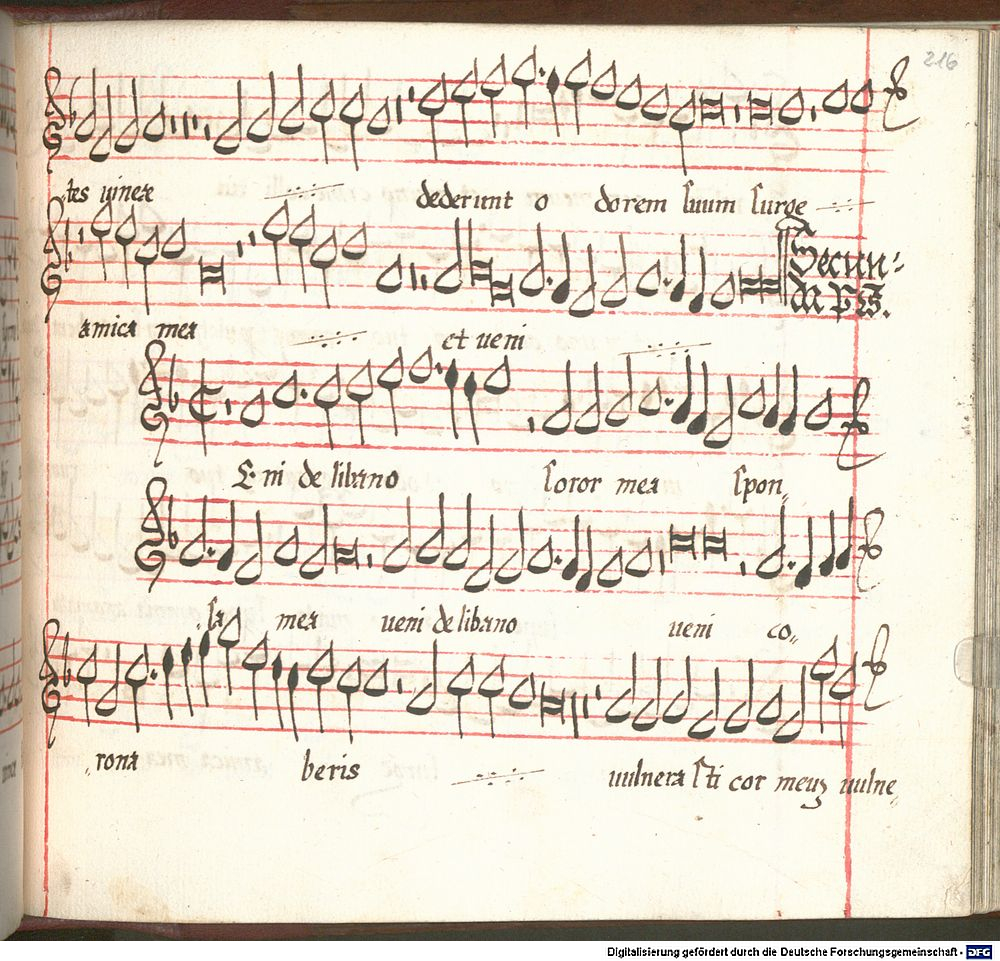 216
tes vineae dederunt o dorem suum surge
Secun-
da ps.
amica mea et veni
Eni de libano soror mea spon
sa mea veni de libano veni co
rona beris vulnera sti cor meuz vulne
Digitalisierung gefördert durch die Deutsche Forschungsgemeinschaft - DFG